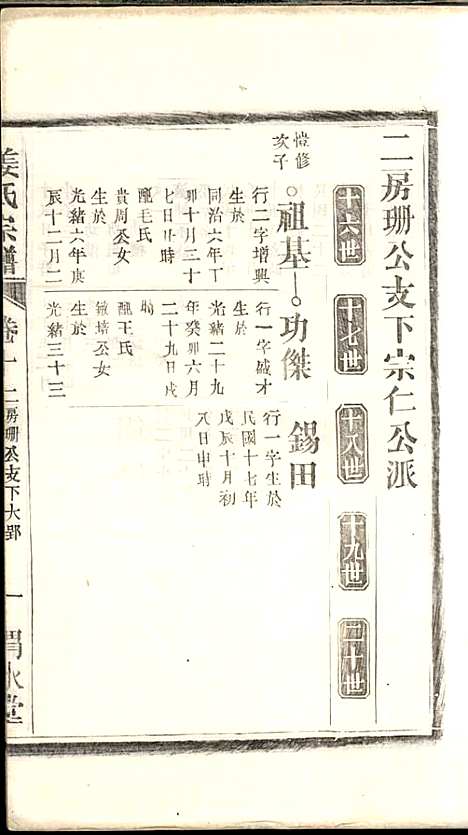 二房珊公支下宗仁公派
十六世 十七世 十八世 十九世 二十世
愷修
次子
祖基 功傑 錫田
行二字增興
生於
同治六年丁
卯十月三十
七日丑時
配毛氏
貴周公女
生於
光緒六年庚
辰十二月二
行一字盛才
生於
光緒二十九
年癸卯六月
二十九日戌
時
配王氏
敏培公女
生於
光緒三十三
行一字生於
民國十七年
戊辰十月初
八日申時
姜氏宗譜 卷一 二房珊公支下大郢 一 渭水堂